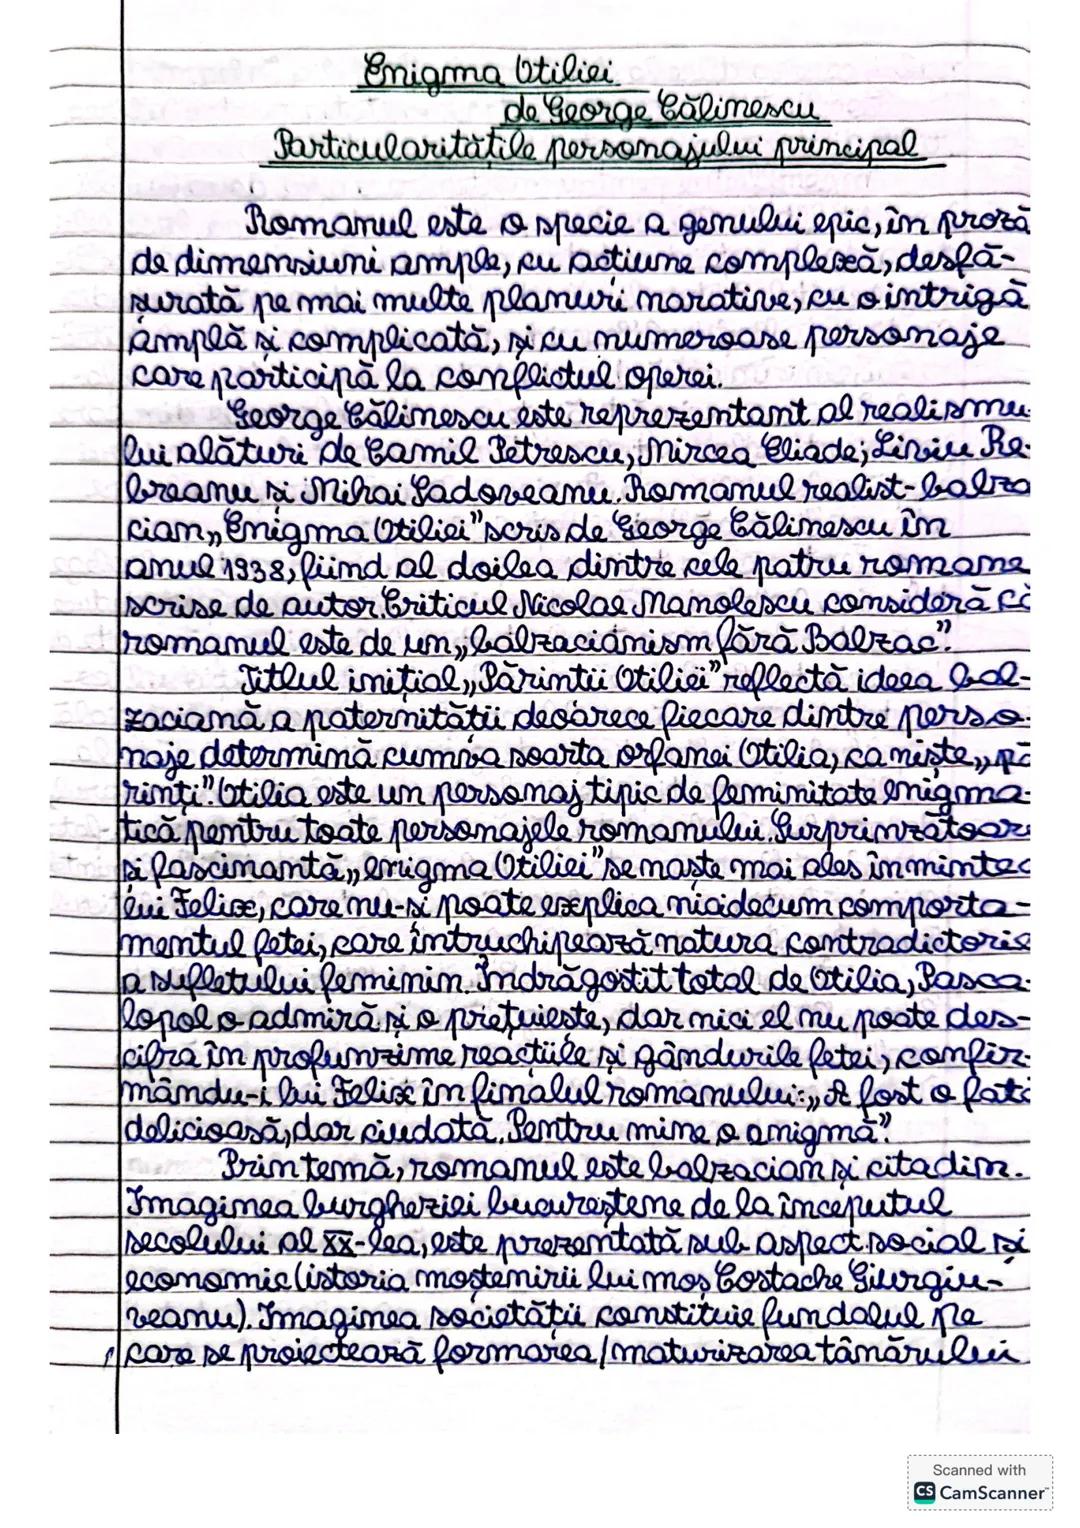 Enigma Otiliei
de George Călinescu
Particularitățile personajului principal
Romanul este o specie a genului epic, în proză
de dimensiuni ample, cu acțiune complexă, desfă-
șurată pe mai multe planuri narative, cu o intrigă
amplă și complicată, și cu numeroase personaje
care participă la conflictul operei.
George Călinescu este reprezentant al realismu-
lui alături de Camil Petrescu, Mircea Eliade, Liviu Re-
breanu și Mihai Sadoveanu. Romanul realist-balza
cian „Enigma Otiliei” scris de George Călinescu în
anul 1938, fiind al doilea dintre cele patru romane
scrise de autor. Criticul Nicolae Manolescu consideră că
romanul este de un „balzacianism fără Balzac”.
Titlul inițial „Părinții Otiliei” reflectă ideea bal-
zaciană a paternității deoarece fiecare dintre perso-
naje determină cumva soarta orfanei Otilia, ca niște „pă
rinți”. Otilia este un personaj tipic de feminitate enigma-
tică pentru toate personajele romanului. Surprinzătoare
și fascinantă „enigma Otiliei” se naște mai ales în mintea
lui Felix, care nu-și poate explica nicidecum comporta-
mentul fetei, care întruchipează natura contradictorie
a sufletului feminin. Îndrăgostit total de Otilia, Pasca-
lopol o admiră și o prețuiește, dar nici el nu poate des-
cifra în profunzime reacțiile și gândurile fetei, confir-
mându-i lui Felix în finalul romanului: „A fost o fată
delicioasă, dar ciudată. Pentru mine o enigmă”.
Prin temă, romanul este balzacian și citadin.
Imaginea burgheziei bucureștene de la începutul
secolului al XX-lea, este prezentată sub aspect social și
economic (istoria moștenirii lui moș Costache Giurgiu-
veanu). Imaginea societății constituie fundalul pe
care se proiectează formarea/maturizarea tânărului
Scanned with
CS CamScanner